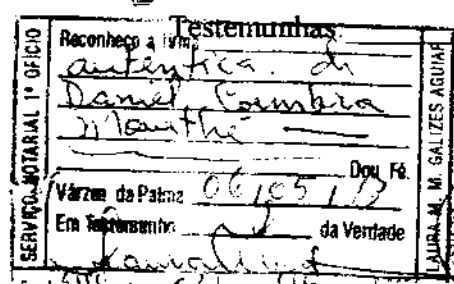 Testemunhas:
SERVIÇO NOTARIAL 1º OFÍCIO
Reconheço a firma
autêntica de
Daniel Coimbra
Dou Fé.
Várzea da Palma 06/05/
Em Testemunho da Verdade
LAURA M. M. GALIZES AGUIAR